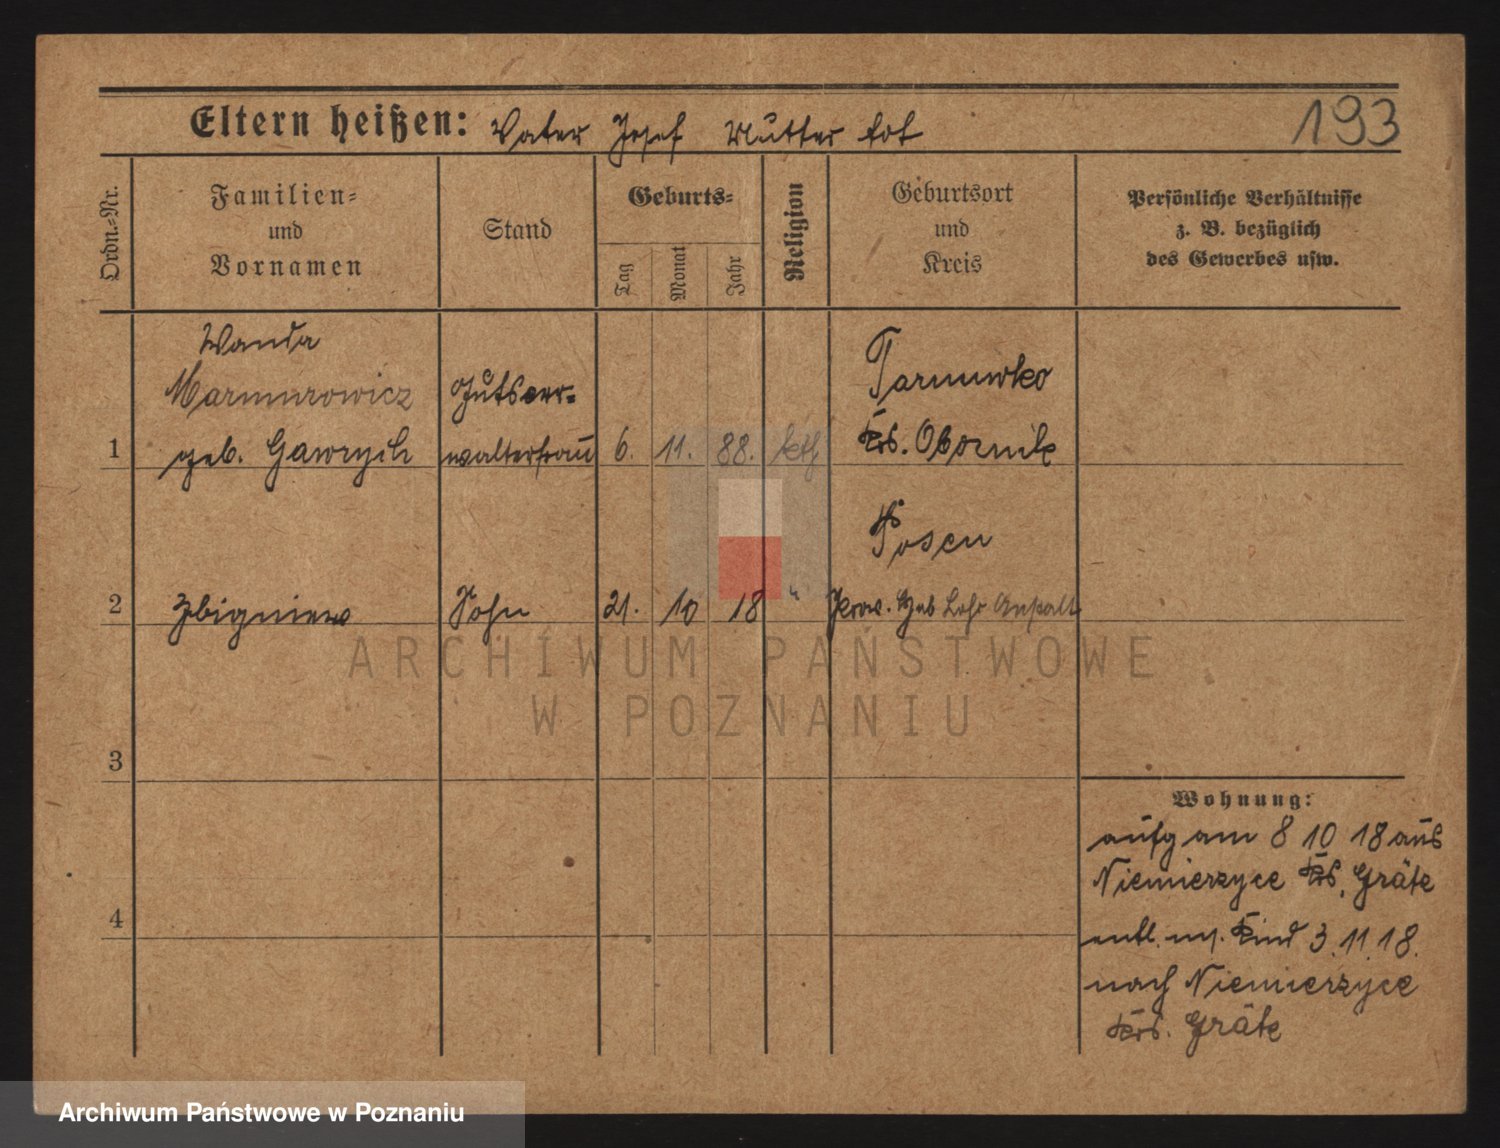 Eltern heißen: Vater Josef Mutter tot
193
Ordn.-Nr.
Familien-
und
Vornamen
Stand
Geburts-
Tag
Monat
Jahr
Religion
Geburtsort
und
Kreis
Persönliche Verhältnisse
z. B. bezüglich
des Gewerbes usw.
Wanda
Marmurowicz
geb. Gawrych
Gutsver-
walterfrau
1
6. 11. 88. kth
Tarnowko
Krs. Obornik
Posen
2 Zbigniew Sohn 21. 10 18 " Prov. Heb Lehr Anstalt
ARCHIWUM PAŃSTWOWE
W POZNANIU
3
4
Wohnung:
aufg am 8 10 18 aus
Niemierzyce Krs. Grätz
entl. m. Kind 3.11.18.
nach Niemierzyce
Krs. Grätz
Archiwum Państwowe w Poznaniu